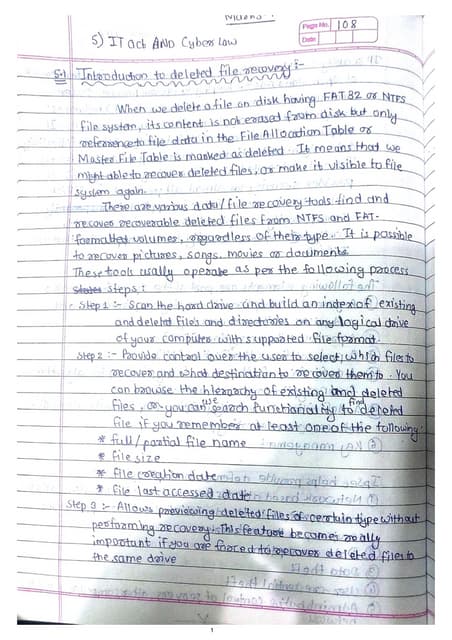 Page No. 108
Date
5) IT act AND Cyber law
5.1 Introduction to deleted file recovery :-
When we delete a file on disk having FAT 32 or NTFS
file system, its content is not erased from disk but only
reference to file data in the File Allocation Table or
Master File Table is marked as deleted. It means that we
might able to recover deleted files, or make it visible to file
system again.
There are various data/file recovery tools find and
recover recoverable deleted files from NTFS and FAT-
formatted volumes, regardless of their type. It is possible
to recover pictures, songs, movies or documents.
These tools usally operate as per the following process
States steps :
Step 1 :- Scan the hard drive and build an index of existing
and deleted files and directories on any logical drive
of your computer with supported file format.
Step 2 :- Provide control over the user to select, which files to
recover and what destination to recover them to. You
can browse the hierachy of existing and deleted
files, or you can use search functionality to find deleted
file if you remember at least one of the following:
* full/partial file name
* file size
* file creation date
* file last accessed date
Step 3 :- Allows previewing deleted files of certain type without
performing recovery. This feature becomes really
important if you are forced to recover deleted files to
the same drive
1